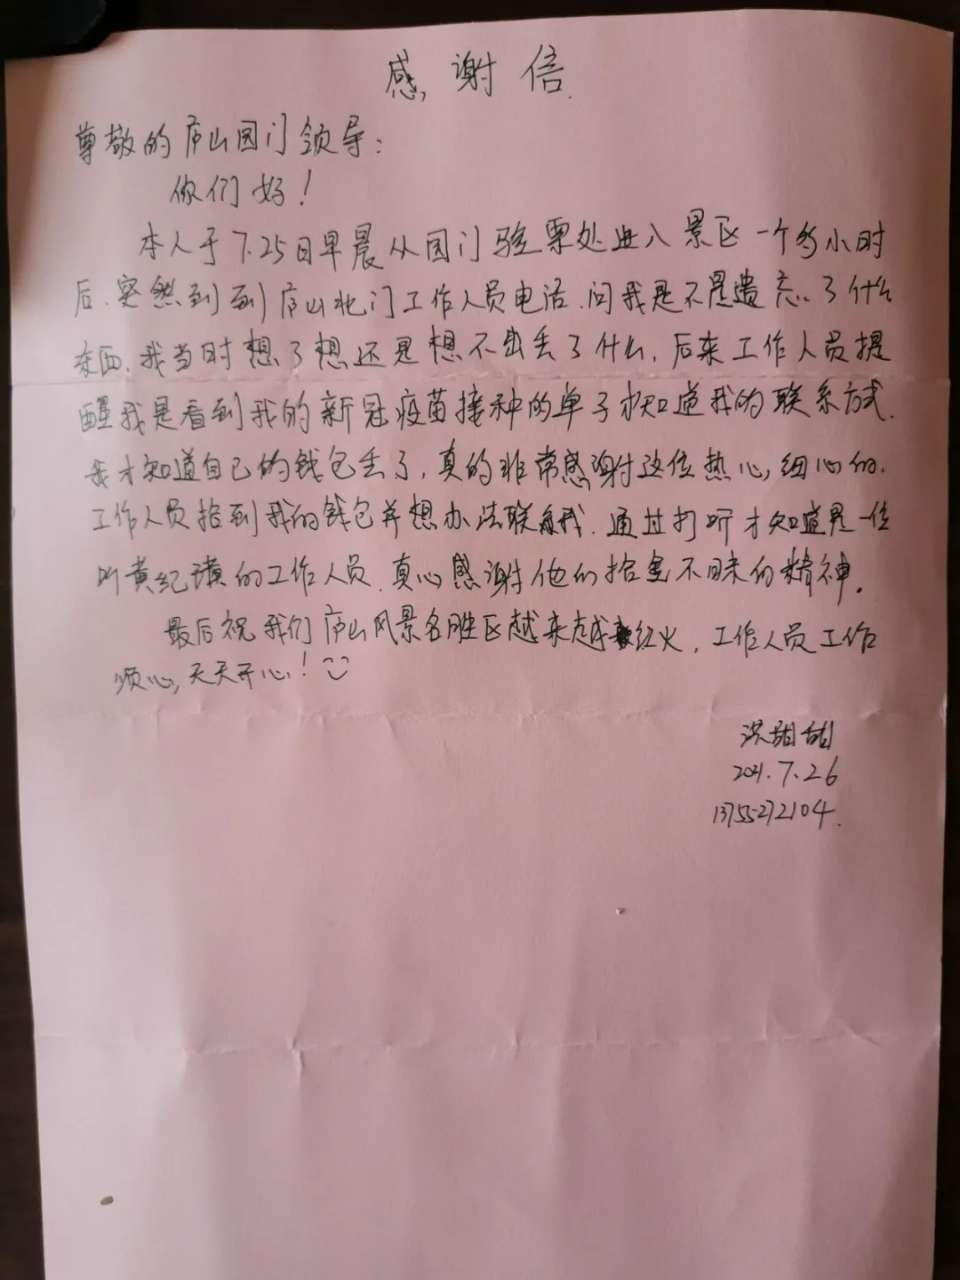 感谢信
尊敬的庐山园门领导：
你们好！
本人于7.25日早晨从园门验票处进入景区一个多小时
后.突然到到庐山北门工作人员电话.问我是不是遗忘了什么
东西.我当时想了想还是想不出丢了什么,后来工作人员提
醒我是看到我的新冠疫苗接种的单子才知道我的联系方式.
我才知道自己的钱包丢了,真的非常感谢这位热心,细心的.
工作人员拾到我的钱包并想办法联系我.通过打听才知道是一位
叫黄纪璜的工作人员.真心感谢他们拾金不昧的精神.
最后祝我们庐山风景名胜区越来越红火,工作人员工作
顺心,天天开心!
洪甜甜
2021.7.26
13755272104.